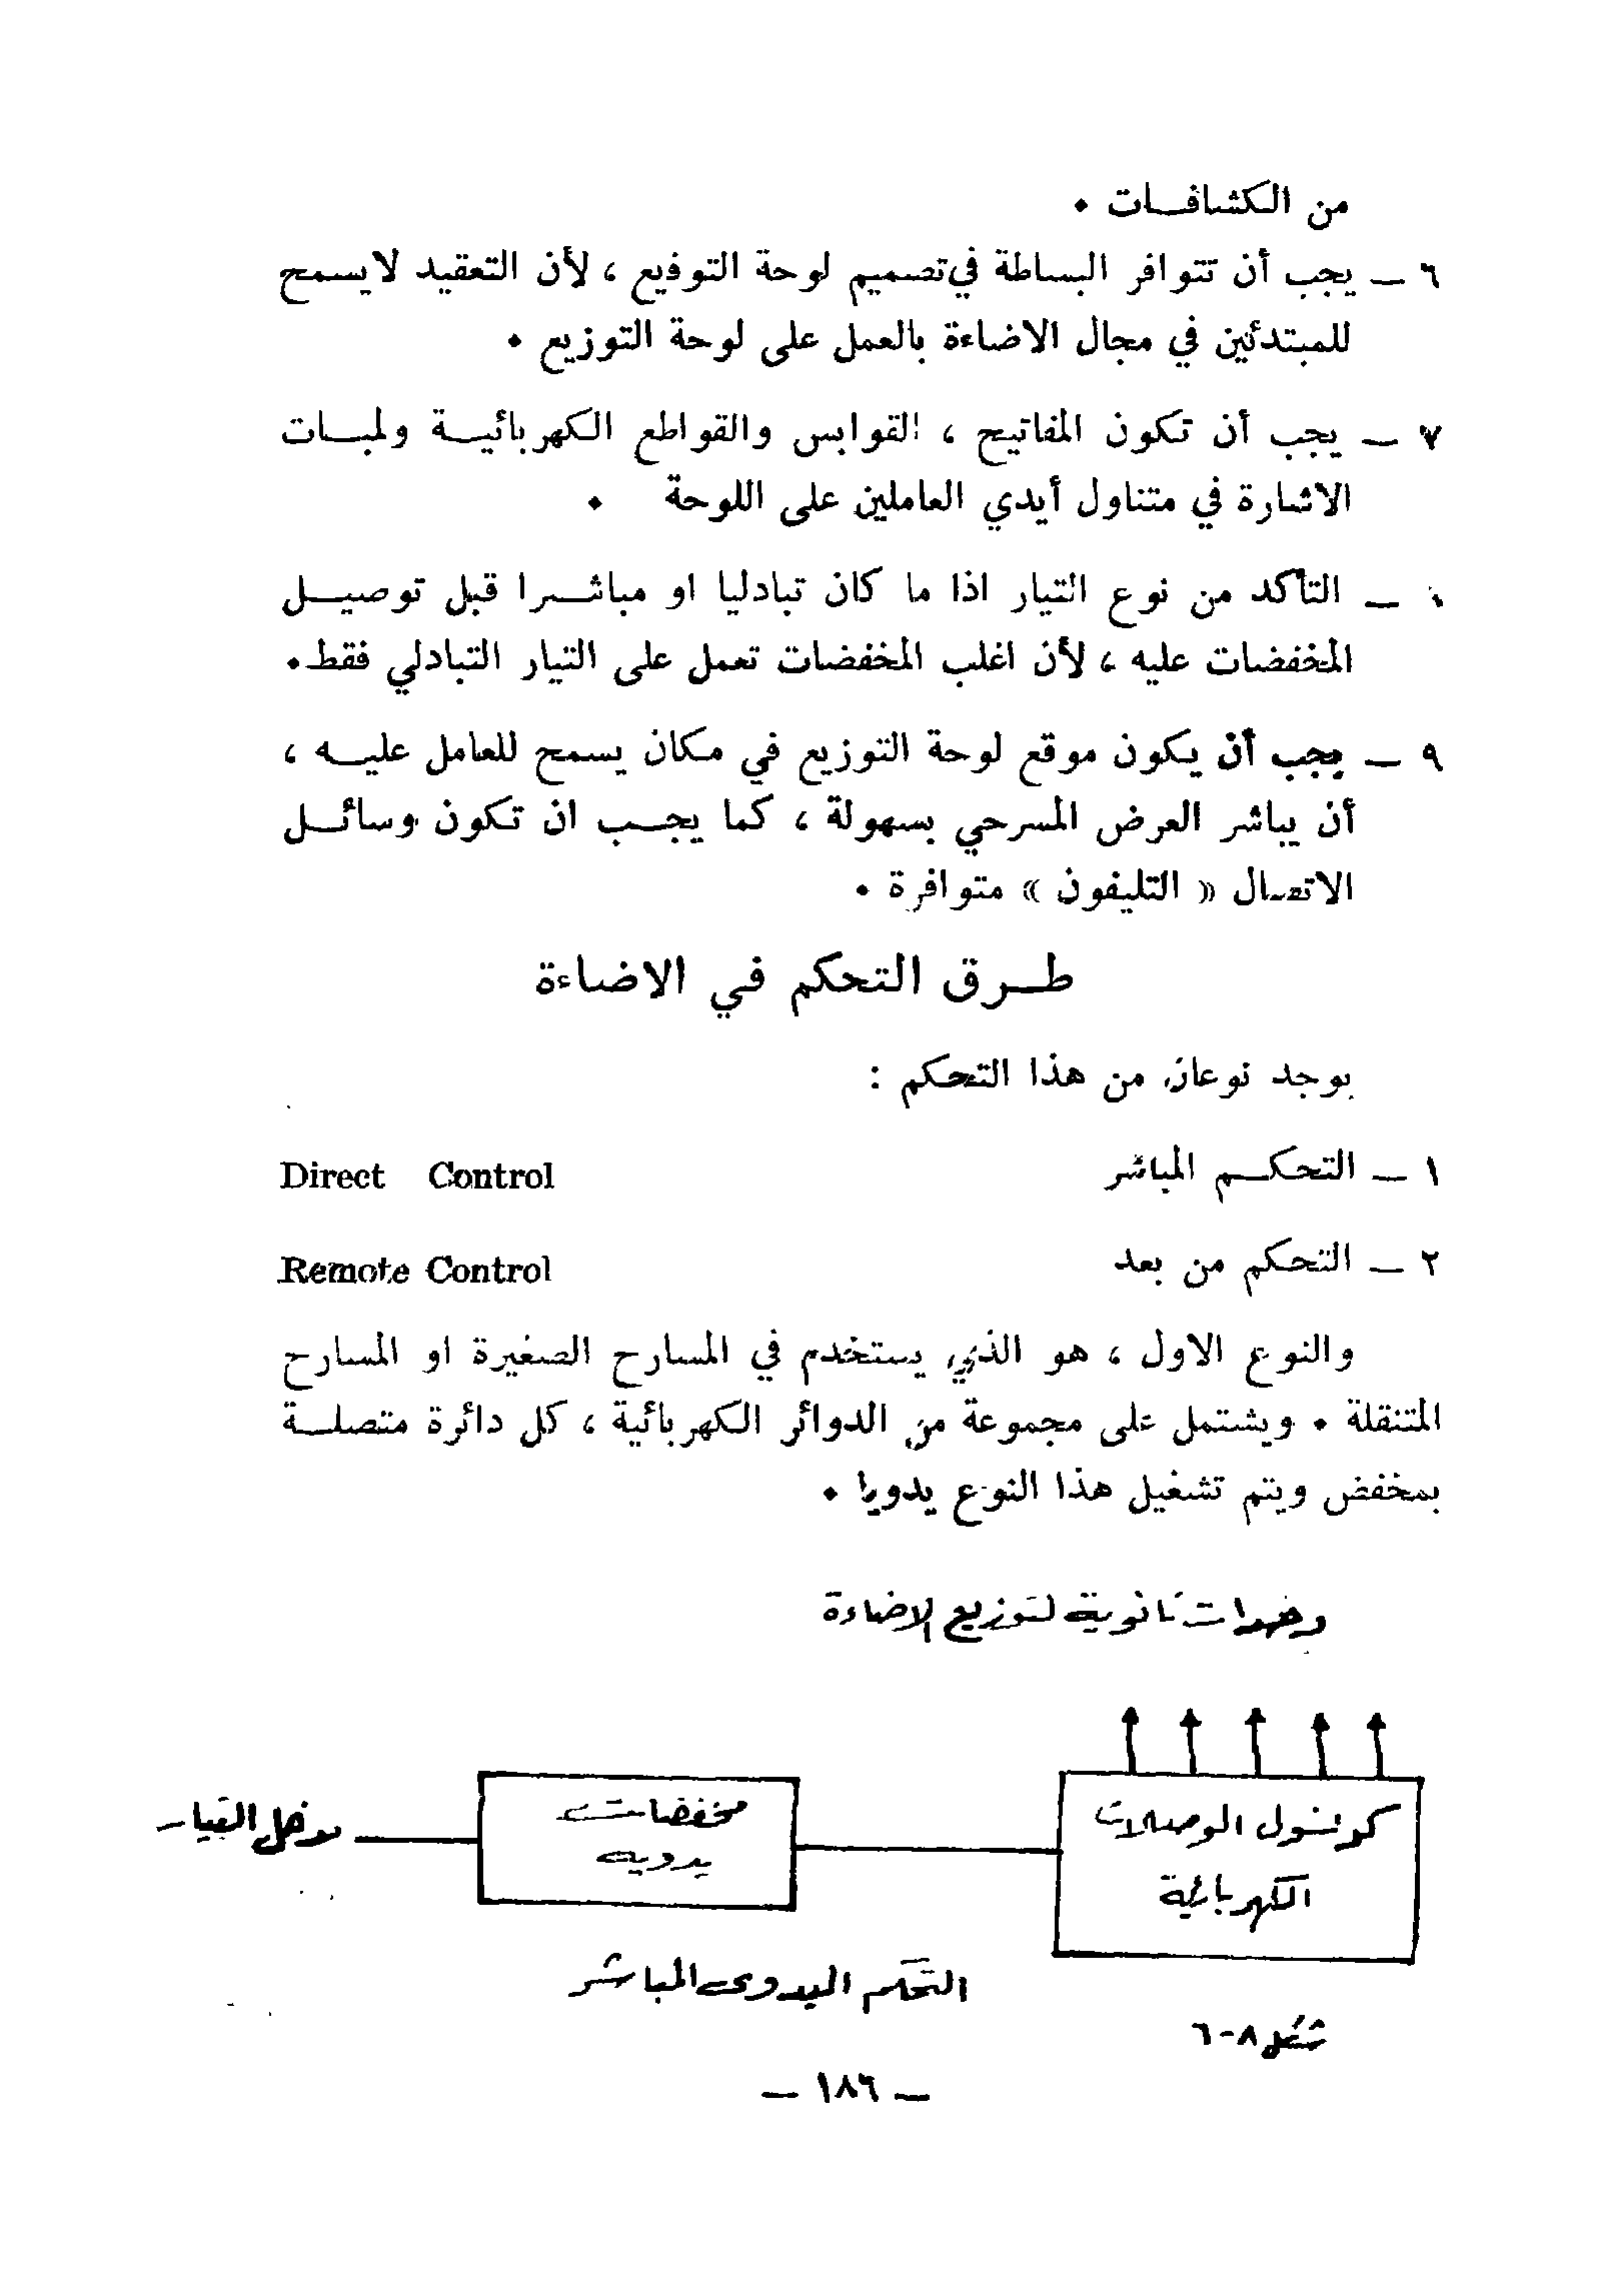 من الكشافـــات ٠
٦ — يجب أن تتوافر البساطة في تصميم لوحة التوفيع ، لأن التعقيد لايسمح
للمبتدئين في مجال الاضاءة بالعمل على لوحة التوزيع ٠
٧ — يجب أن تكون المفاتيح ، القوابس والقواطع الكهربائيــة ولمبــات
الاشارة في متناول أيدي العاملين على اللوحة ٠
— التأكد من نوع التيار اذا ما كان تبادليا او مباشــرا قبل توصيــل
المخفضات عليه ، لأن اغلب المخفضات تعمل على التيار التبادلي فقط٠
٩ — يجب أن يكون موقع لوحة التوزيع في مكان يسمح للعامل عليــه ،
أن يباشر العرض المسرحي بسهولة ، كما يجــب ان تكون وسائــل
الاتصال « التليفون » متوافرة ٠
طــرق التحكم في الاضاءة
يوجد نوعان من هذا التحكم :
١ — التحكــم المباشر Direct Control
٢ — التحكم من بعد Remote Control
والنوع الاول ، هو الذي يستخدم في المسارح الصغيرة او المسارح
المتنقلة ٠ ويشتمل على مجموعة من الدوائر الكهربائية ، كل دائرة متصلــة
بمخفض ويتم تشغيل هذا النوع يدويا ٠
وحدات ثانوية لتوزيع الاضاءة
كونسول الوصلات
الكهربائية
مخفضات
يدوية
مدخل التيار
التحكم اليدوى المباشر
شكل ٨-٦
— ١٨٦ —